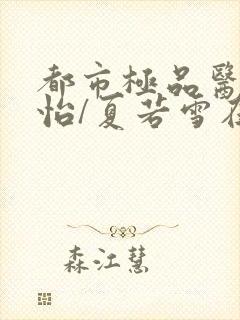 都市極品醫
怡/夏若雪在
森江慧